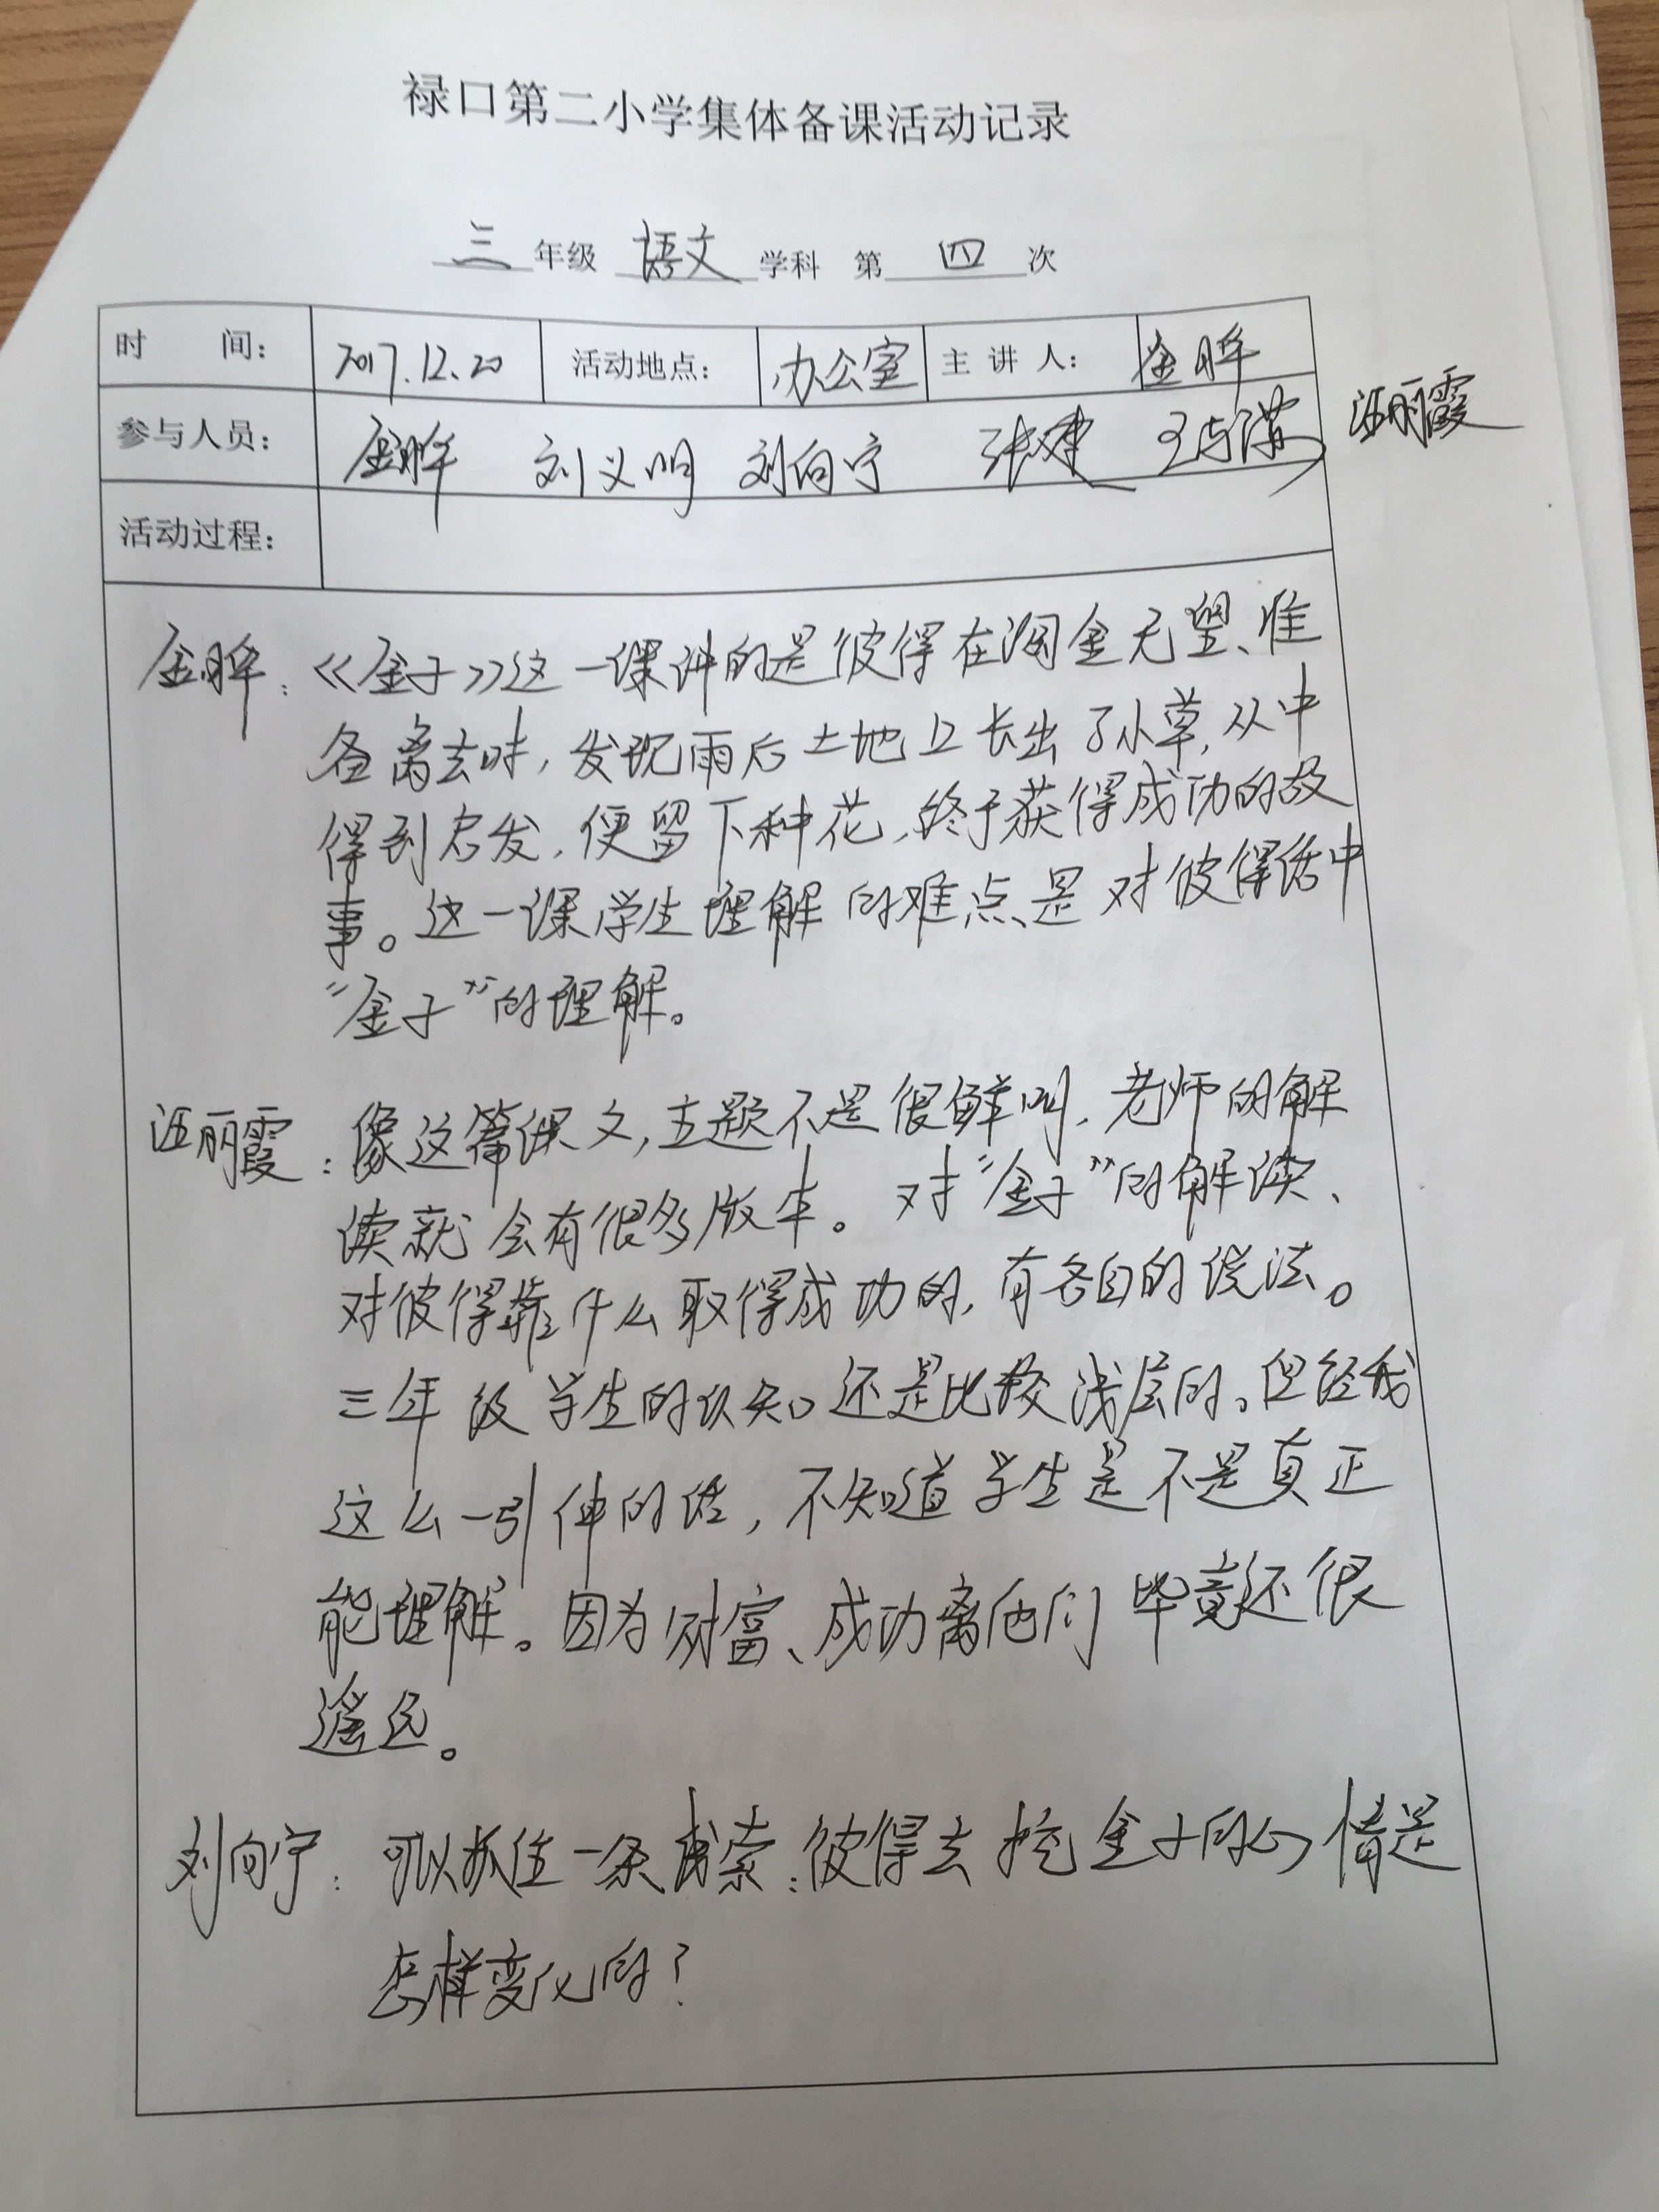 禄口第二小学集体备课活动记录
三 年级 语文 学科 第 四 次
时 间: 2017.12.20 活动地点: 办公室 主讲人: 金晖
参与人员: 金晖 刘义明 刘向宁 张建 汪丽霞
活动过程:
金晖:《金子》这一课讲的是彼得在淘金无望、准
备离去时,发现雨后土地上长出了小草,从中
得到启发,便留下种花,终于获得成功的故
事。这一课学生理解的难点是对彼得话中
“金子”的理解。
汪丽霞:像这篇课文,主题不是很鲜明,老师的解
读就会有很多版本。对“金子”的解读、
对彼得靠什么取得成功的,有各自的说法。
三年级学生的认知还是比较浅层的。但经我
这么一引伸的话,不知道学生是不是真正
能理解。因为财富、成功离他们毕竟还很
遥远。
刘向宁:可以抓住一条线索:彼得去挖金子的心情是
怎样变化的?